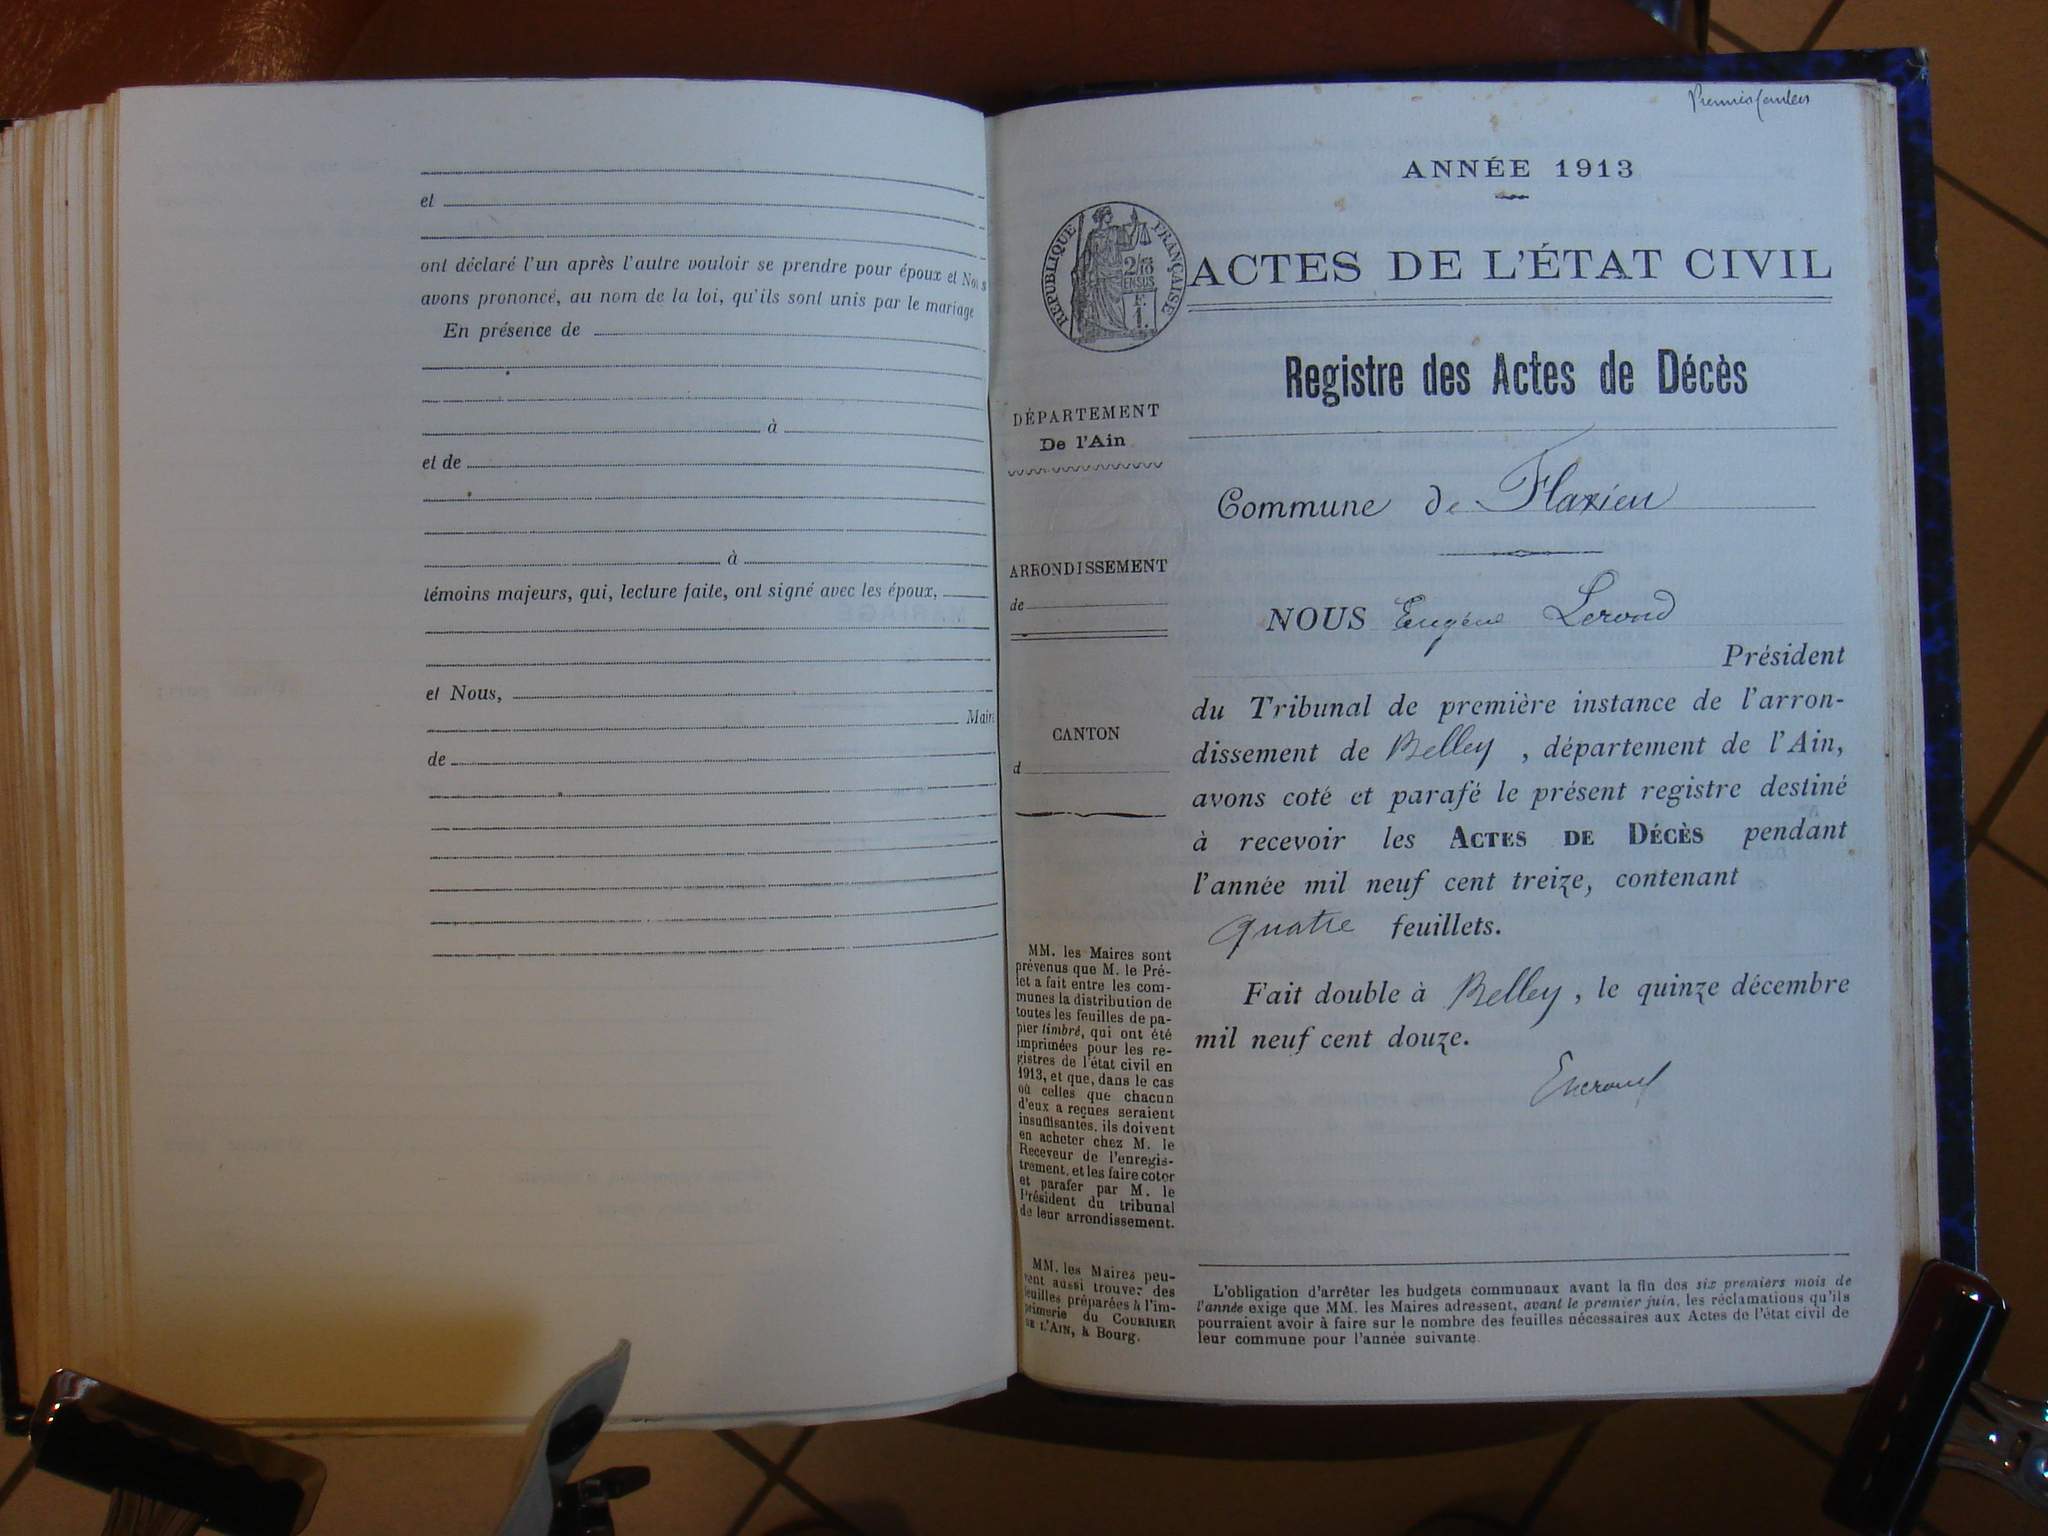 et
ont déclaré l'un après l'autre vouloir se prendre pour époux et Nous
avons prononcé, au nom de la loi, qu'ils sont unis par le mariage
En présence de
à
et de
à
témoins majeurs, qui, lecture faite, ont signé avec les époux,
et Nous,
Maire
de
Premier
ANNÉE 1913
RÉPUBLIQUE FRANÇAISE
2/10
EN SUS
F.
1.
ACTES DE L'ÉTAT CIVIL
Registre des Actes de Décès
DÉPARTEMENT
De l'Ain
Commune de Flaxieu
ARRONDISSEMENT
de
NOUS Eugène
Président
du Tribunal de première instance de l'arron-
dissement de Belley, département de l'Ain,
avons coté et parafé le présent registre destiné
à recevoir les ACTES DE DÉCÈS pendant
l'année mil neuf cent treize, contenant
quatre feuillets.
Fait double à Belley, le quinze décembre
mil neuf cent douze.
CANTON
d
MM. les Maires sont
prévenus que M. le Pré-
fet a fait entre les com-
munes la distribution de
toutes les feuilles de pa-
pier timbré, qui ont été
imprimées pour les re-
gistres de l'état civil en
1913, et que, dans le cas
où celles que chacun
d'eux a reçues seraient
insuffisantes, ils doivent
en acheter chez M. le
Receveur de l'enregis-
trement, et les faire coter
et parafer par M. le
Président du tribunal
de leur arrondissement.
MM. les Maires peu-
vent aussi trouver des
feuilles préparées à l'im-
primerie du COURRIER
DE L'AIN, à Bourg.
L'obligation d'arrêter les budgets communaux avant la fin des six premiers mois de
l'année exige que MM. les Maires adressent, avant le premier juin, les réclamations qu'ils
pourraient avoir à faire sur le nombre des feuilles nécessaires aux Actes de l'état civil de
leur commune pour l'année suivante.